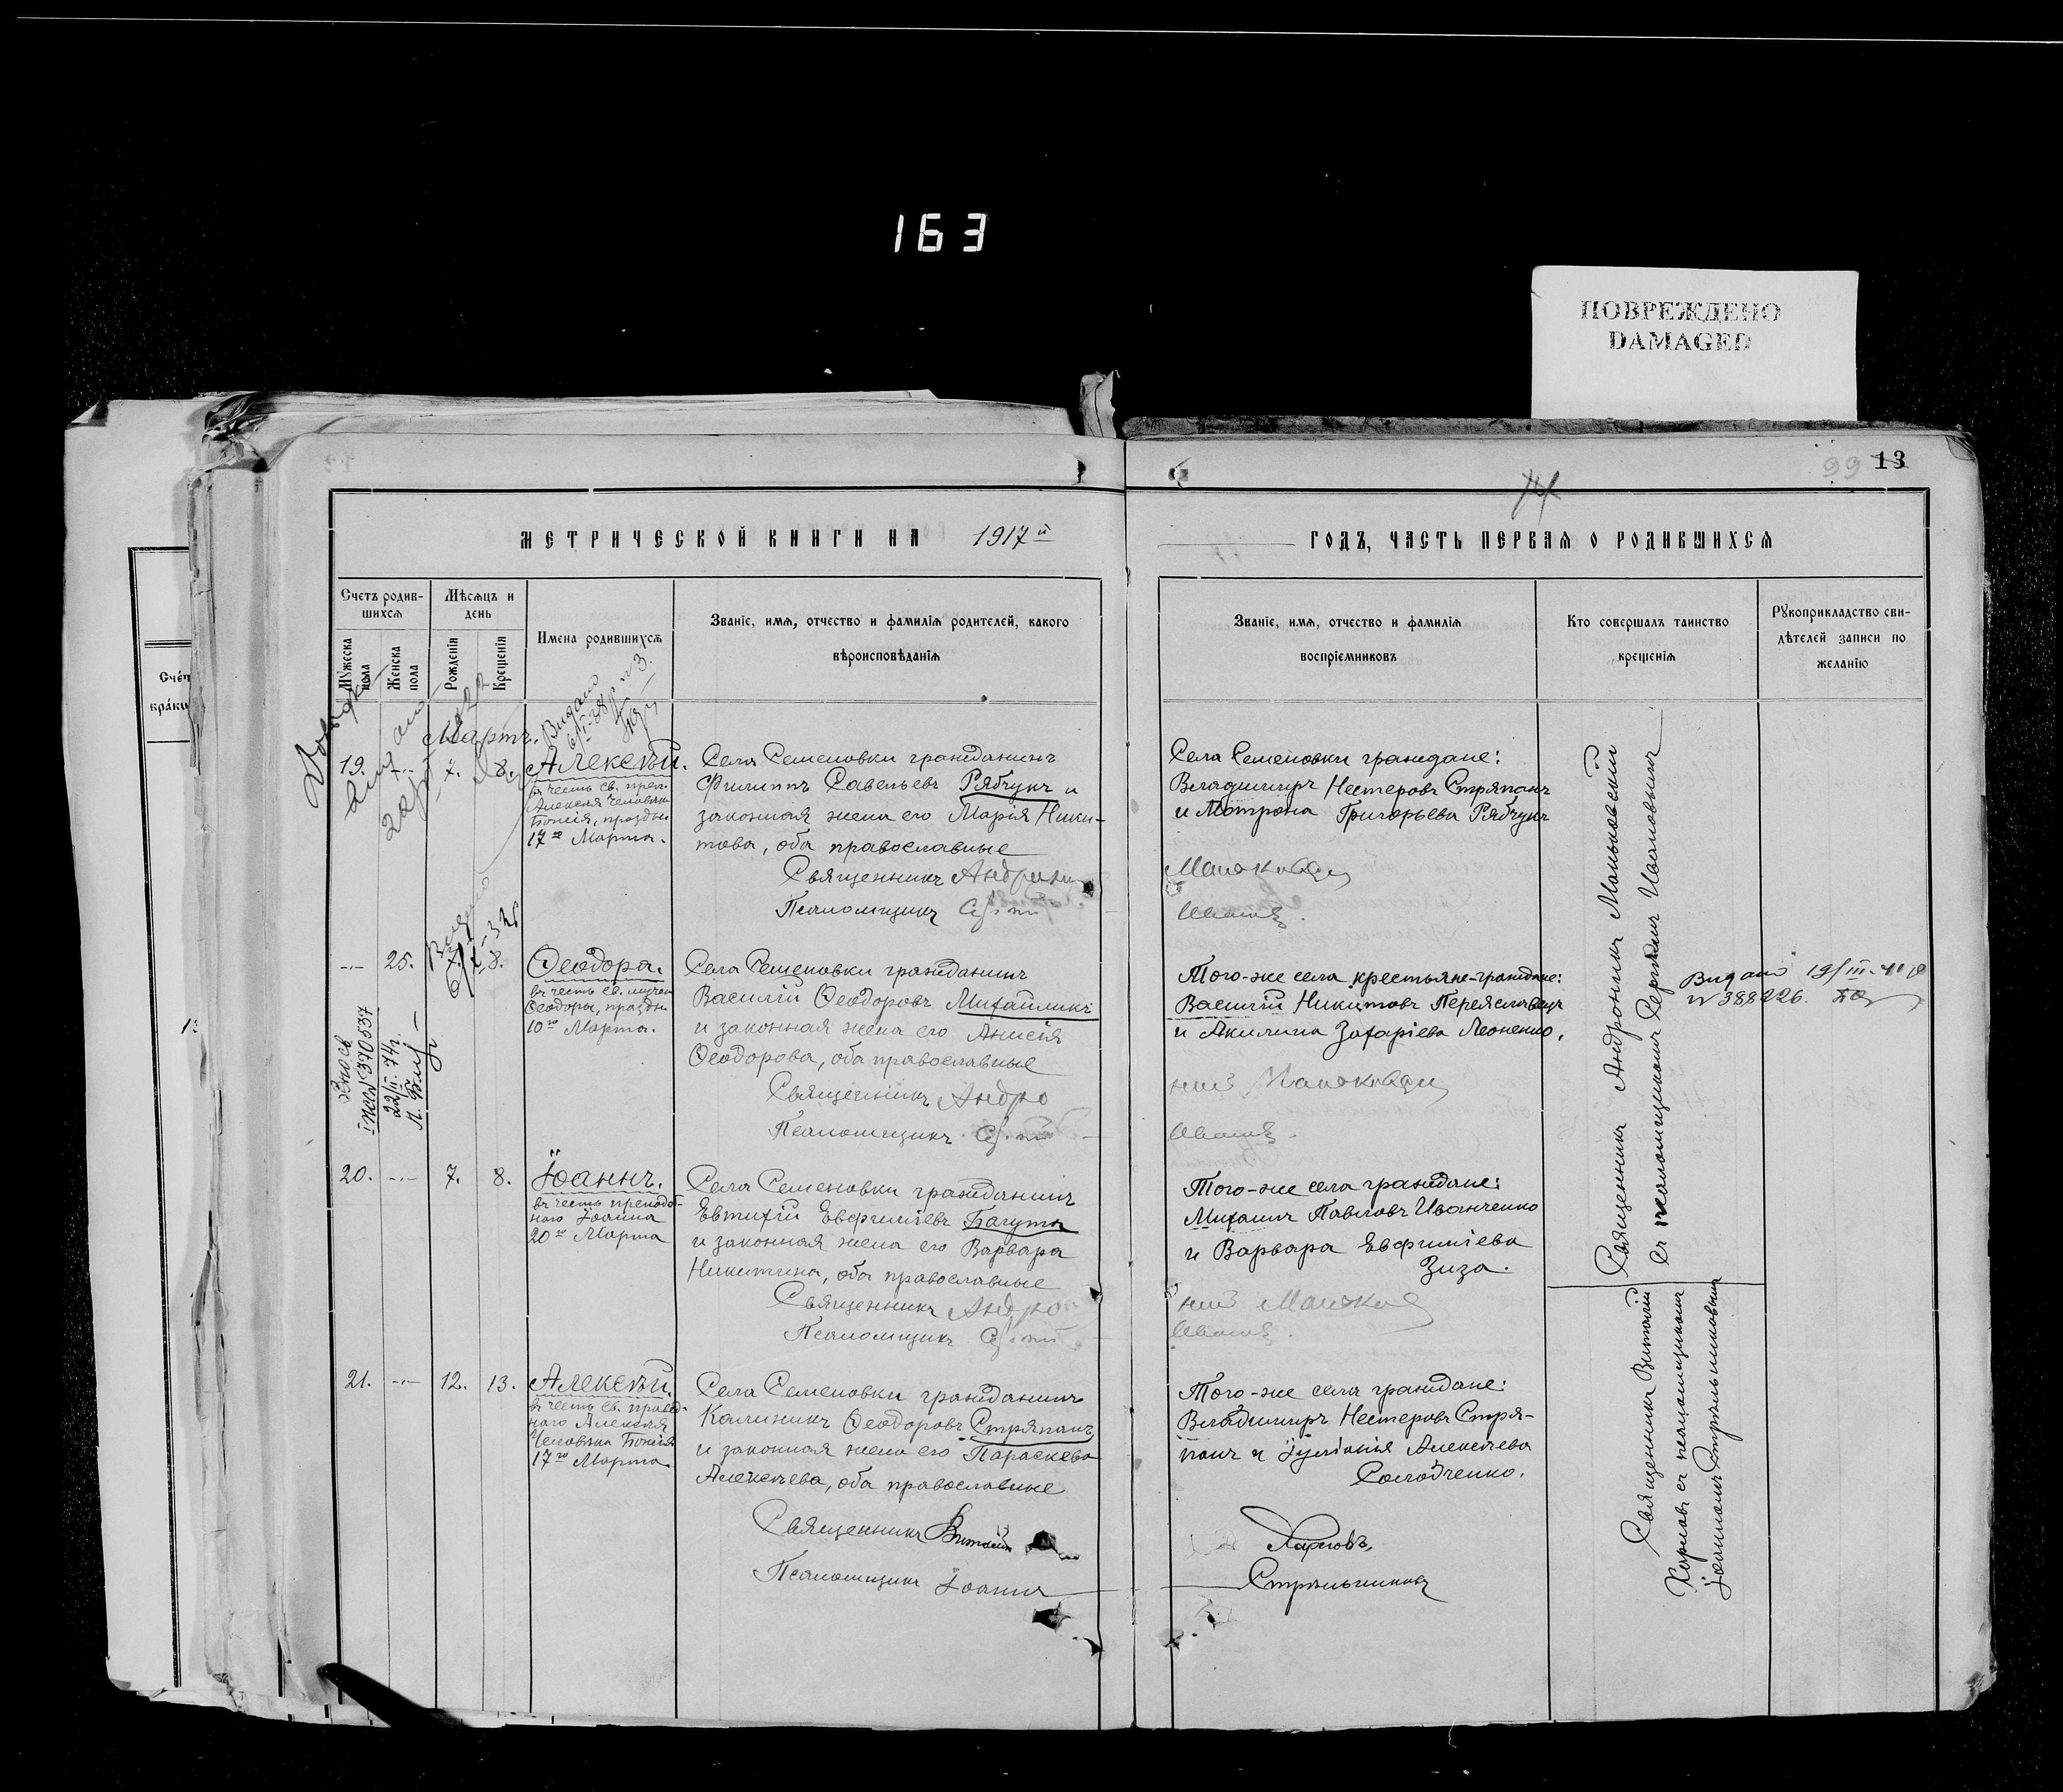 163
ПОВРЕЖДЕНО
DAMAGED
99 13
МЕТРИЧЕСКОЙ КНИГИ НА 1917й
ГОДЪ, ЧАСТЬ ПЕРВАЯ О РОДИВШИХСЯ
Счетъ родив-
шихся
Мужеска пола
Женска пола
Мѣсяцъ и
день
Рожденія
Крещенія
Имена родившихся
Званіе, имя, отчество и фамилія родителей, какого
вѣроисповѣданія
Званіе, имя, отчество и фамилія
воспріемниковъ
Кто совершалъ таинство
крещенія
Рукоприкладство сви-
дѣтелей записи по
желанію
Счет
брак
13
Мартъ.
Видано
19. -"- 7. 8. Алексѣй.
въ честь св. преп.
Алексѣя Человѣка
Божія, праздн.
17го Марта.
Села Семеновки гражданинъ
Филиппъ Савельевъ Рябчукъ и
законная жена его Марья Ники-
това, оба православные
Священникъ Андрони
Псаломщикъ
Села Семеновки граждане:
Владимиръ Нестеровъ Стряпанъ
и Мотрона Григорьева Рябчукъ
Маньковскій
-"- 25. 7. 8. Ѳеодора.
въ честь св. мучен.
Ѳеодоры, праздн.
10го Марта.
Села Семеновки гражданинъ
Василій Ѳеодоровъ Михайликъ
и законная жена его Анисія
Ѳеодорова, оба православные
Священникъ Андро
Псаломщикъ
Того-же села крестьяне-граждане:
Василій Никитовъ Переяславецъ
и Акилина Захаріева Леоненко.
ній Маньковскій
Видано 19/III-41 р
№ 388226.
370537
22/III. 74г.
20. -"- 7. 8. Іоаннъ.
въ честь преподоб-
наго Іоанна
20го Марта
Села Семеновки гражданинъ
Евтихій Евфиміевъ Багута
и законная жена его Варвара
Никитина, оба православные
Священникъ Андро
Псаломщикъ
Того-же села граждане:
Михаилъ Павловъ Иванченко
и Варвара Евфиміева
Зиза.
ній Маньков
21. -"- 12. 13. Алексѣй.
въ честь св. правед-
наго Алексѣя
Человѣка Божія
17го Марта.
Села Семеновки гражданинъ
Калиникъ Ѳеодоровъ Стряпанъ
и законная жена его Параскева
Алексѣева, оба православные
Священникъ Виталій
Псаломщикъ Іоаннъ
Того-же села граждане:
Владимиръ Нестеровъ Стря-
панъ и Іуліанія Алексѣева
Солодченко.
Харловъ.
Стрѣльниковъ
Священникъ Андроникъ Маньковскій
съ псаломщикомъ Сергіемъ
Священникъ Виталій
Харловъ съ псаломщикомъ
Іоанномъ Стрѣльниковымъ